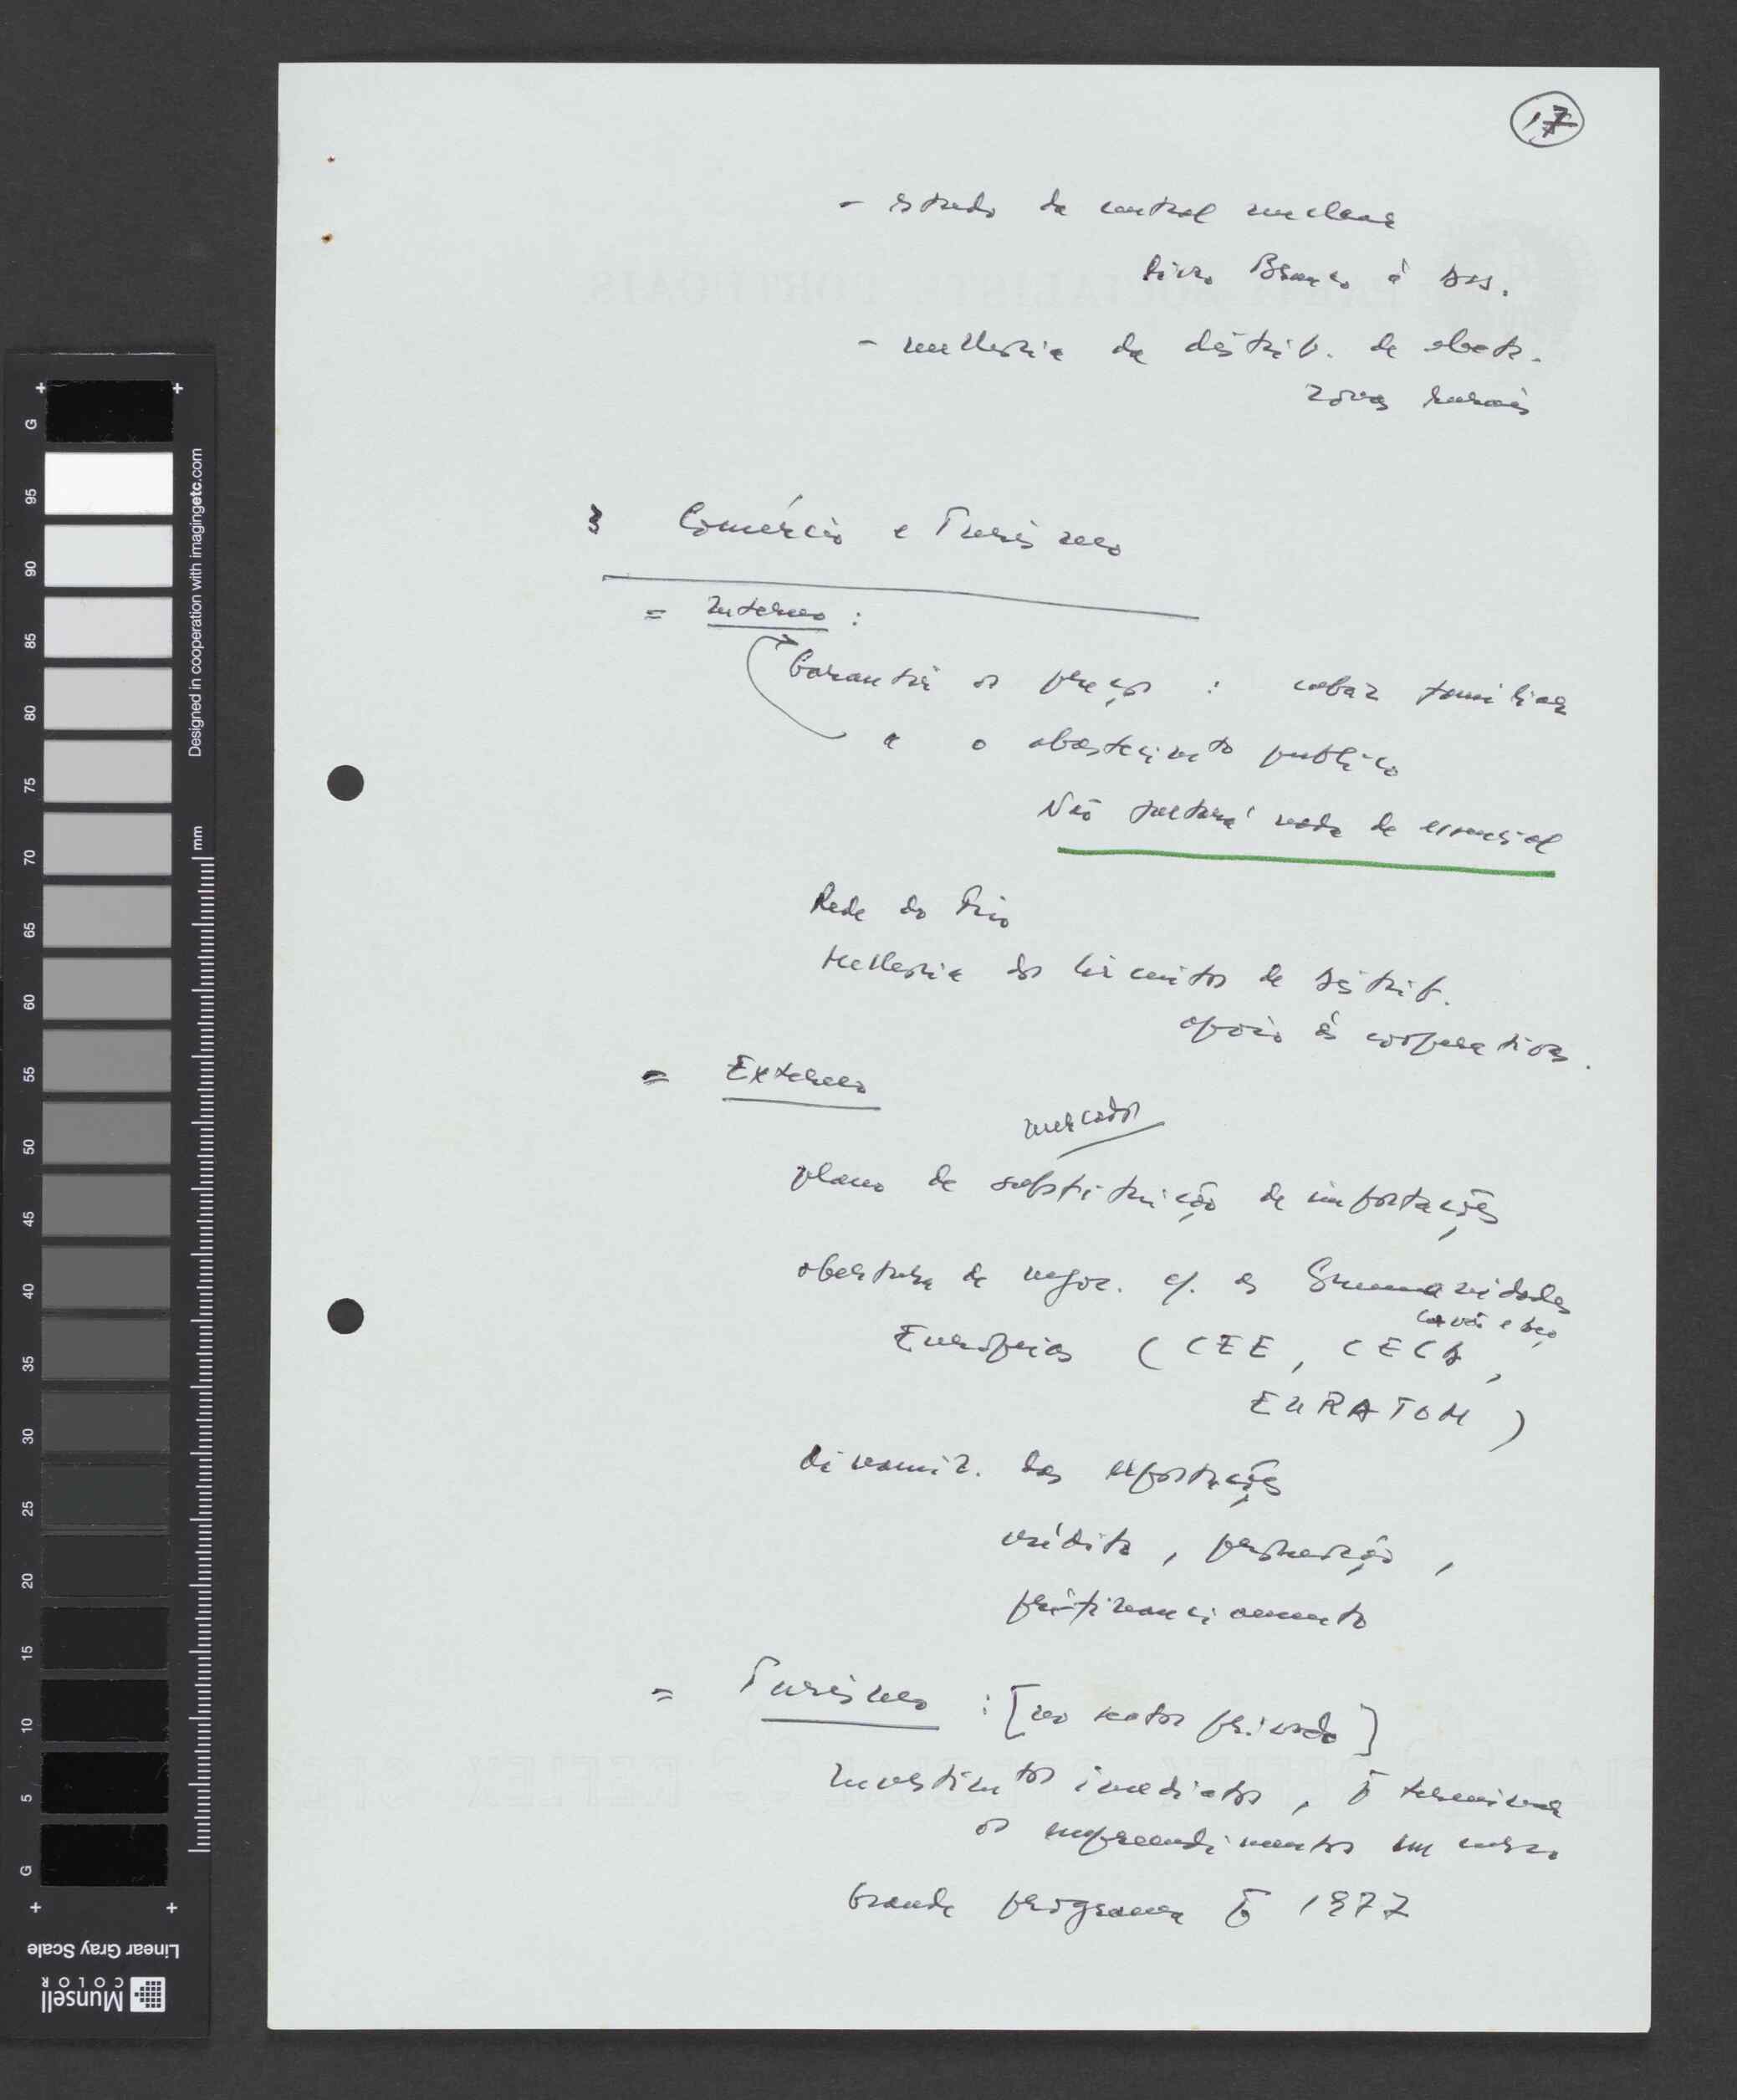 17
- estudo da central nuclear
Livro Branco à Ass.
- melhoria da distrib. de electr.
zonas rurais
3 Comércio e Turismo
= Interno :
Garantir os preços : cabaz familiar
e o abastecimto publico
Não faltará nada de essencial
Rede do Frio
Melhoria dos circuitos de distrib.
apoio às cooperativas.
= Externo
mercados
plano de substituição de importações
abertura de negoc. c/. as Comunidades
carvão e aço
Européias ( CEE, CECA,
EURATOM )
dinamiz. das exportações
crédito, promoção,
pré-financiamento
= Turismo : [no sector privado]
Investimtos imediatos, p terminar
os empreendimentos em curso
Grande programa p 1977
Designed in cooperation with imagingetc.com
mm
G 95 90 85 80 75 70 65 60 55 50 45 40 35 30 25 20 15 10 5 G
Linear Gray Scale
Munsell
COLOR